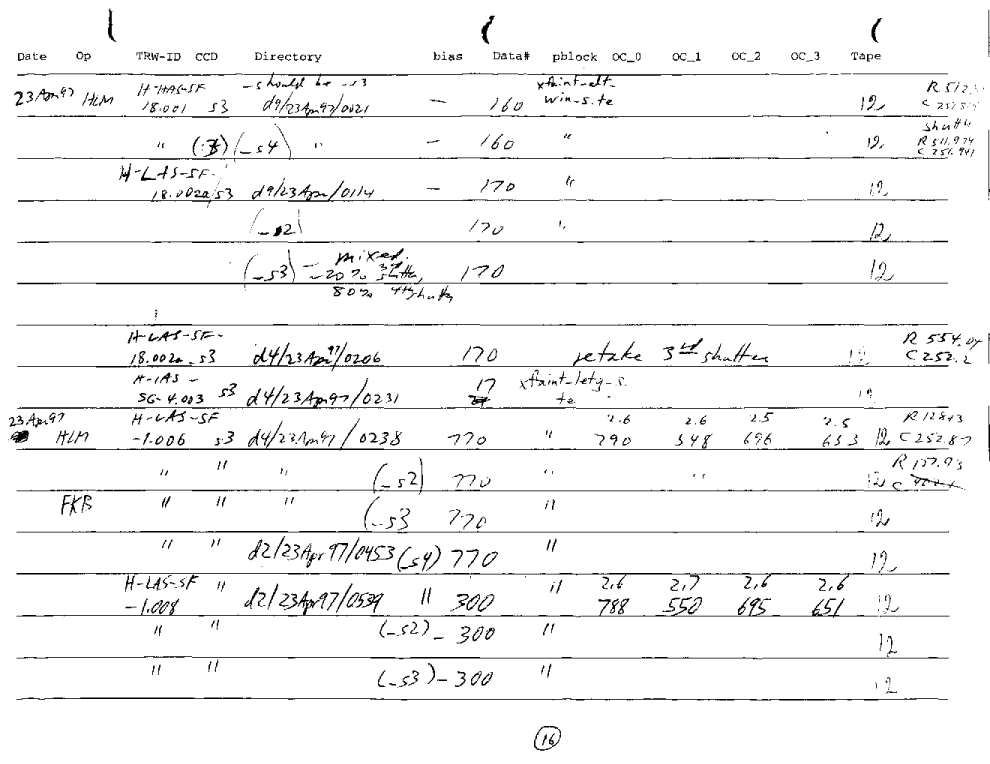 Date Op TRW-ID CCD Directory bias Data# pblock OC_0 OC_1 OC_2 OC_3 Tape
H-HAS-SF - should be _s3 xfaint-alt- R 512.
23 Apr 97 HLM 18.001 s3 d9/23Apr97/0021 — 160 win-s.te 12
shutt 4
" (_s4) " — 160 " 12 R 511.974
C 251.941
H-LAS-SF-
18.002a/s3 d9/23Apr/0114 — 170 " 12
(_s2) 170 " 12
(_s3) - mixed. 170 12
~20% 3rd shutter,
80% 4th shutter
H-LAS-SF- R 554.07
18.002a_s3 d4/23Apr97/0206 170 retake 3rd shutter 12 C 252.2
H-IAS - xfaint-lety-s.
SG-4.003 s3 d4/23Apr97/0231 17 te 12
23 Apr 97 H-LAS-SF 2.6 2.6 2.5 2.5
HLM -1.006 s3 d4/23Apr97/0238 770 " 790 548 696 653 12 C 252.87
" " " (_s2) 770 " " 12
FKB " " " (_s3 770 " 12
" " d2/23Apr97/0453 (_s4) 770 " 12
H-LAS-SF " " 2.6 2.7 2.6 2.6
-1.008 d2/23Apr97/0539 " 300 788 550 695 651 12
" " (_s2) - 300 " 12
" " (_s3) - 300 " 12
16